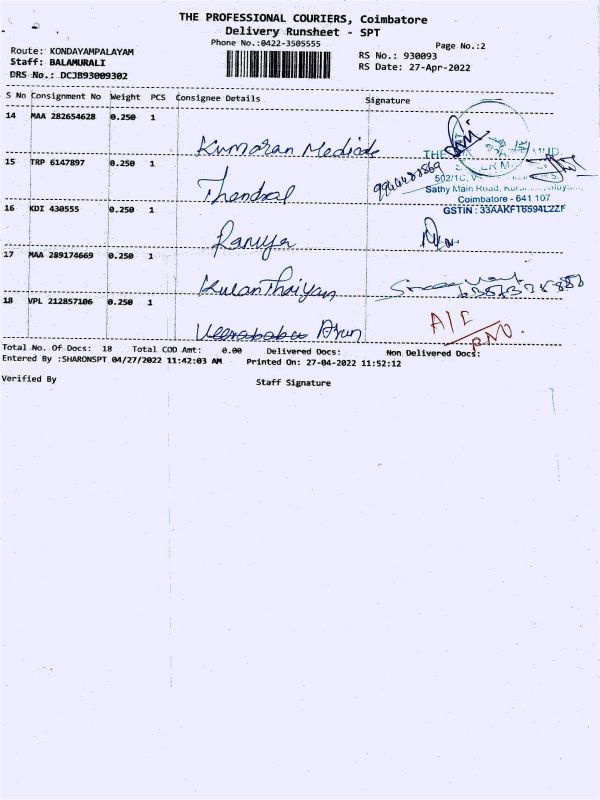 THE PROFESSIONAL COURIERS, Coimbatore
Delivery Runsheet - SPT
Phone No.:0422-3505555
Page No.:2
Route: KONDAYAMPALAYAM
RS No.: 930093
Staff: BALAMURALI
RS Date: 27-Apr-2022
DRS No.: DCJB93009302
S No Consignment No Weight PCS Consignee Details Signature
14 MAA 282654628 0.250 1
Kumaran Medicals
15 TRP 6147897 0.250 1
Thendral
Sathy Main Road,
Coimbatore - 641 107
GSTIN : 33AAKFT6594L2ZF
16 KDI 430555 0.250 1
Ramya
17 MAA 289174669 0.250 1
Kulanthaiyan
18 VPL 212857106 0.250 1
Arun
Total No. Of Docs: 18 Total COD Amt: 0.00 Delivered Docs: Non Delivered Docs:
Entered By :SHARONSPT 04/27/2022 11:42:03 AM Printed On: 27-04-2022 11:52:12
Verified By Staff Signature